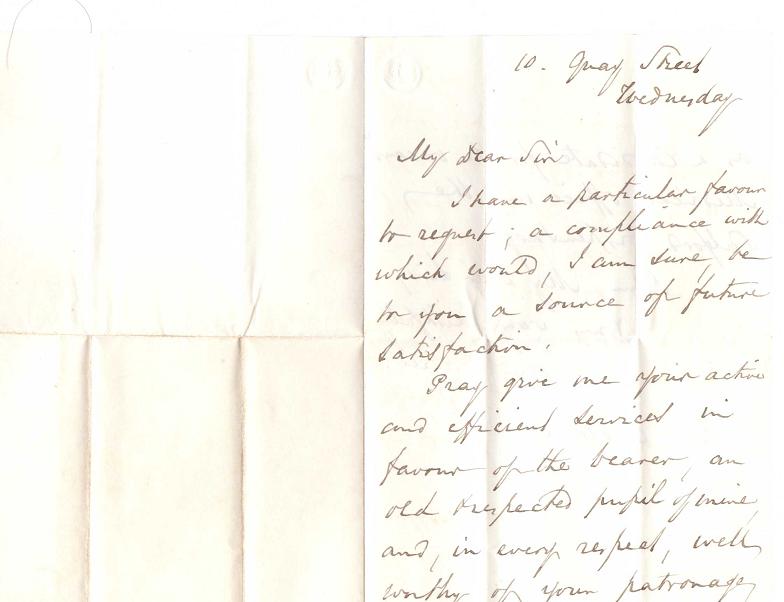 10. Quay Street
Wednesday
My Dear Sir
I have a particular favour
to request; a compliance with
which would, I am sure, be
to you a source of future
satisfaction.
Pray give me your active
and efficient services in
favour of the bearer, an
old & respected pupil of mine,
and, in every respect, well
worthy of your patronage,